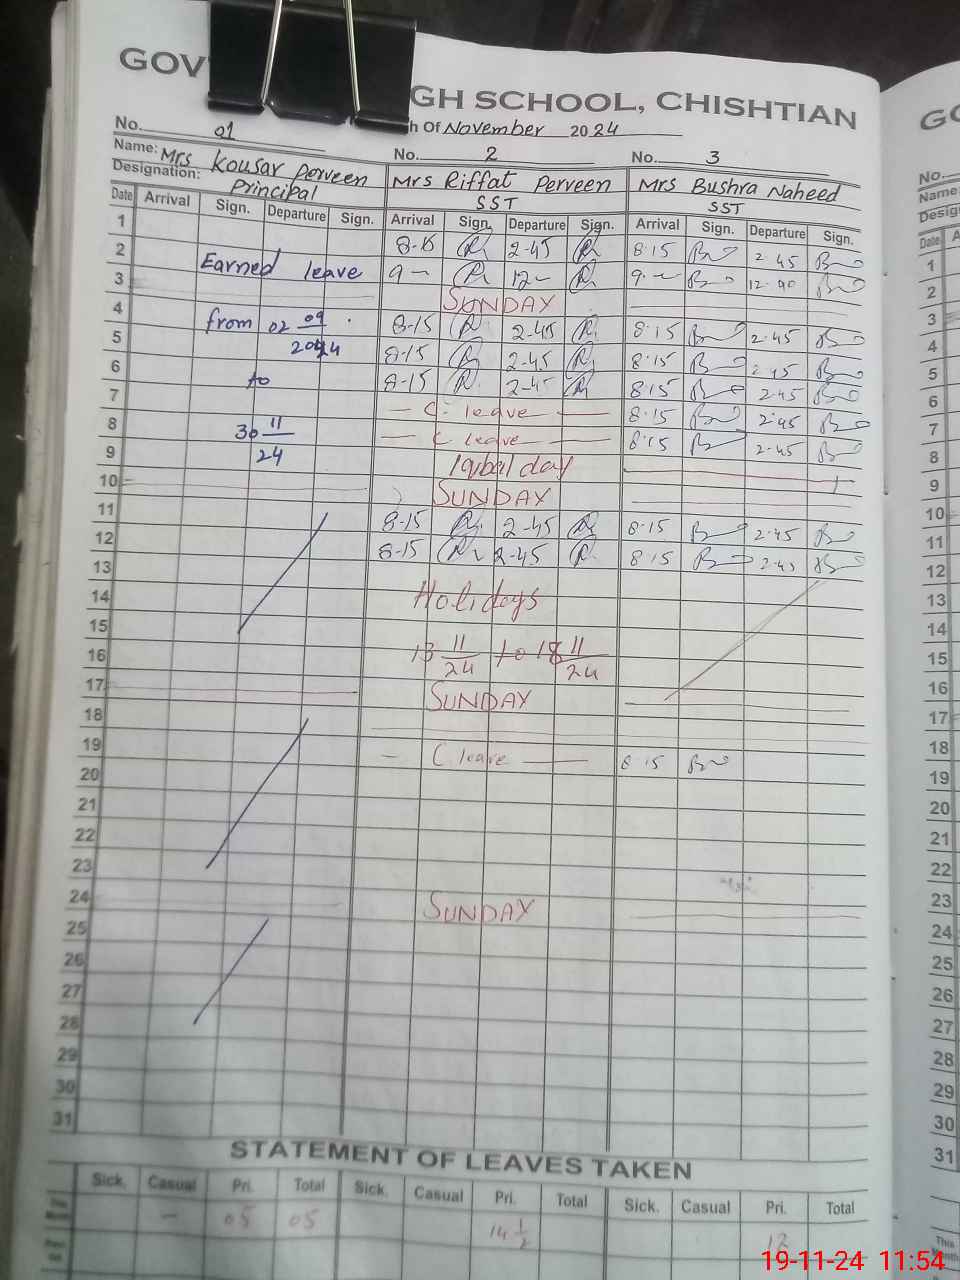 GOV GH SCHOOL, CHISHTIAN
No. 01 h Of November 2024
Name: Mrs Kousar Perveen No. 2 No. 3
Designation: Principal Mrs Riffat Perveen Mrs Bushra Naheed
SST SST
Date Arrival Sign. Departure Sign. Arrival Sign. Departure Sign. Arrival Sign. Departure Sign.
1 8-15 2-45 8.15 2.45
2 Earned leave 9- 12- 9.- 12.40
3 SUNDAY
4 from 02 09 8-15 2-45 8.15 2.45
5 2024 8-15 2-45 8.15 2.45
6 to 8-15 2-45 8.15 2.45
7 - C. leave - 8.15 2.45
8 30 11 - C. leave - 8.15 2.45
9 24 Iqbal day
10 SUNDAY
11 8-15 2-45 8.15 2.45
12 8-15 2-45 8.15 2.45
13
14 Holidays
15
16 13 11/24 to 18 11/24
17 SUNDAY
18
19 - C. leave - 8.15
20
21
22
23
24 SUNDAY
25
26
27
28
29
30
31
STATEMENT OF LEAVES TAKEN
Sick. Casual Pri. Total Sick. Casual Pri. Total Sick. Casual Pri. Total
This Month - 05 05 14 1/2 12
GO
No.
Name
Desig
Date A
1
2
3
4
5
6
7
8
9
10
11
12
13
14
15
16
17
18
19
20
21
22
23
24
25
26
27
28
29
30
31
This
Month
19-11-24 11:54